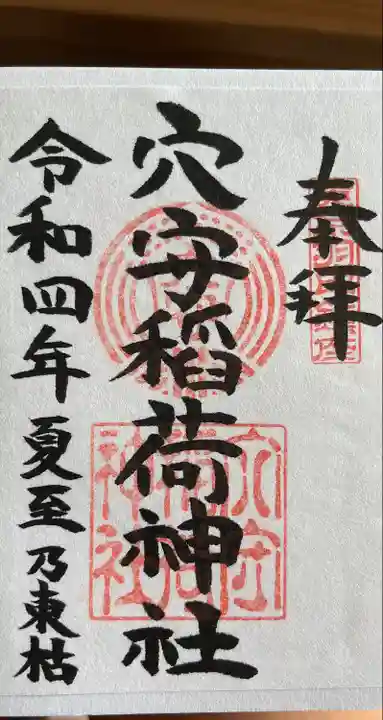 奉拝
穴守稲荷神社
令和四年 夏至 乃東枯
穴守
稲荷
神社